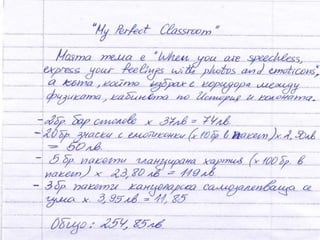 "My Perfect Classroom"
Моята тема е "When you are speechless,
express your feelings with photos and emoticons",
а кътa, който избрах е коридора между
физиката, кабинета по История и колоната.
- 2бр. бар столове x 37лв = 74лв.
- 20бр. значки с емотиконки (x 10бр. в пакет) x 2.50лв
= 50лв.
- 5 бр. пакети гланцирана хартия (x 100бр. в
пакет) x 23,80 лв = 119 лв.
- 3 бр. пакети канцеларска самозалепваща се
гума x 3,95 лв = 11,85
Общо: 254,85лв.